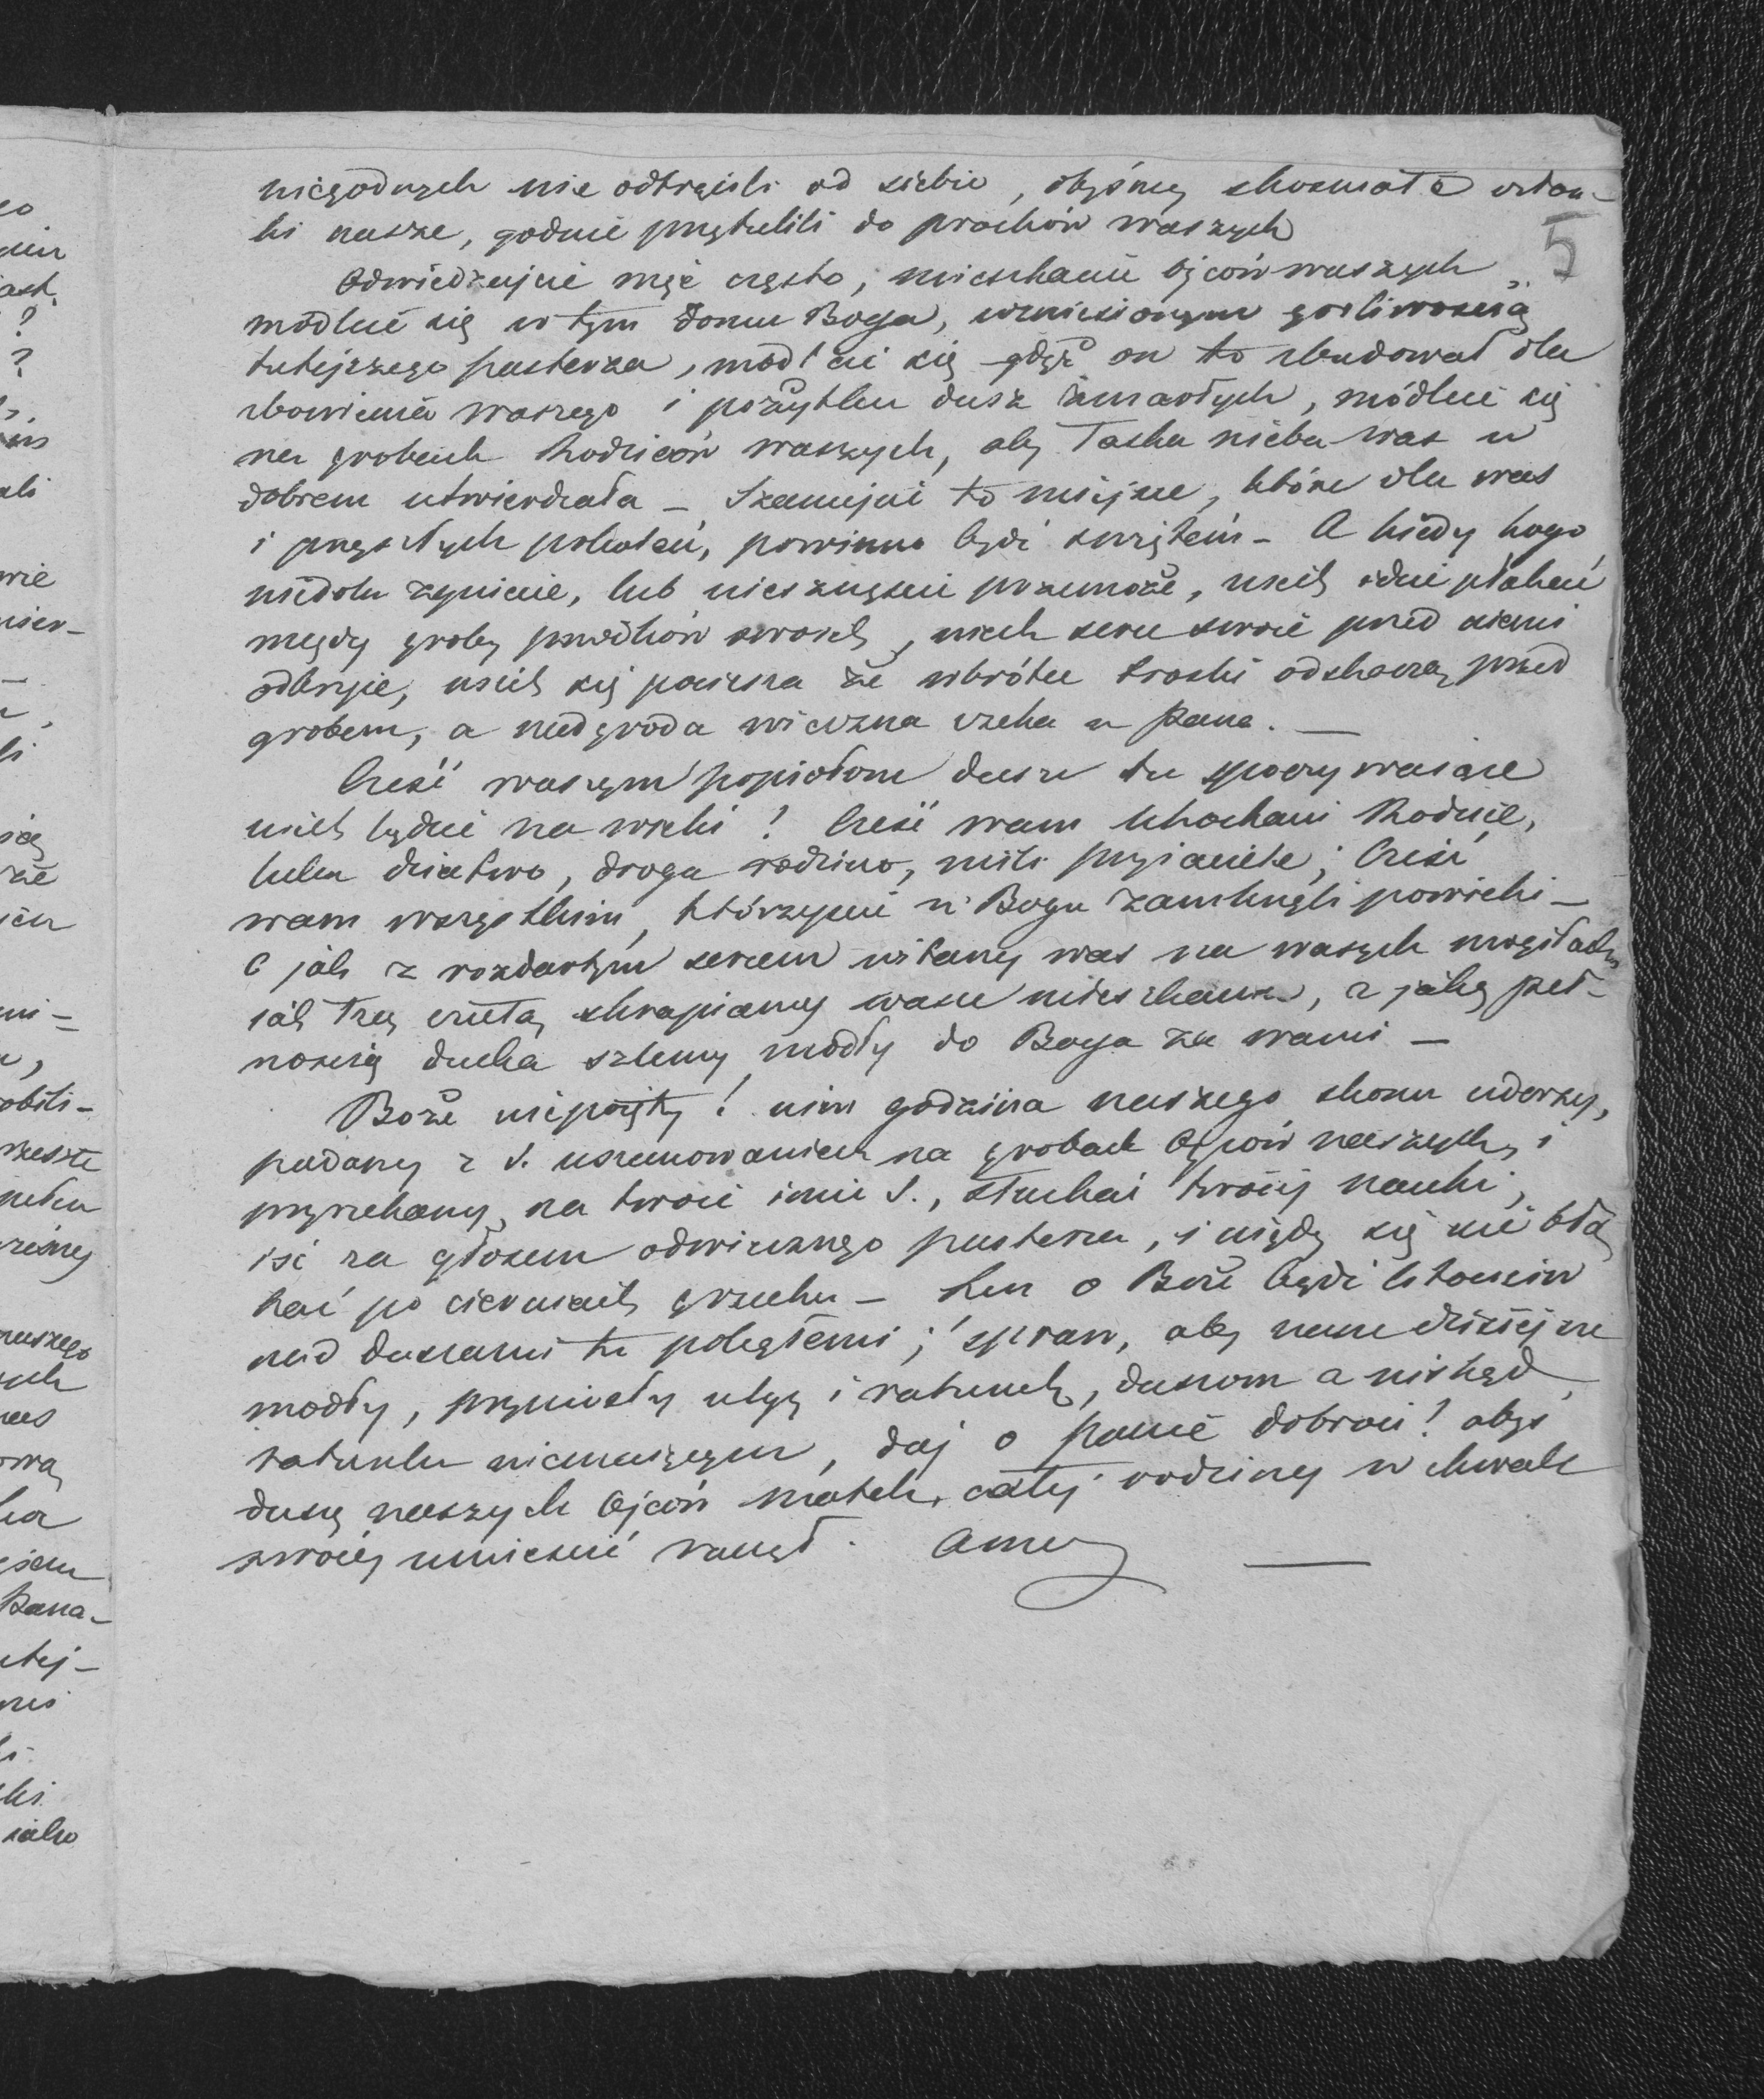 niegodnych nie odtrącili od siebie, obyśmy skosmałe człon-
ki nasze, godnie przytulili do prochów waszych
5
Odwiedzajcie więc często, mieszkanie Ojców waszych,
módlcie się w tym domu Boga, wzniesionym gorliwością
tutejszego pasterza, módlcie się gdyż on to zbudował dla
zbawienia waszego i pożytku dusz zmarłych, módlcie się
na grobach Rodziców waszych, aby łaska nieba was w
dobrem utwierdzała – Szanujcie to miejsce, które dla was
i przyszłych pokoleń, powinno być świętem – A kiedy kogo
niedola zgniecie, lub nieszczęście przemoże, niech idzie płakać
między groby przodków swoich, niech serce swoie przed niemi
odkryie, niech się pociesza że wkrótce troski odskoczą przed
grobem, a nadgroda wieczna czeka u Pana. —
Cześć waszym popiołom dusze tu spoczywaiące
niech będzie na wieki! Cześć wam kochani Rodzice,
luba dziatwo, droga rodzino, mili przyiaciele; Cześć
wam wszystkim, którzyście w Bogu zamknęli powieki –
O jak z rozdartym sercem witamy was na waszych mogiłach
iak łzą czułą skrapiamy wasze mieszkanie, z jaką peł-
nością ducha szlemy modły do Boga za wami –
Boże niepojęty! nim godzina naszego skonu uderzy,
padamy z S. uszanowaniem na grobach Ojców naszych, i
przyrzekamy, na twoie imie S., słuchać twoiéj nauki,
iść za głosem odwiecznego pasterza, i nigdy się nie błą
kać po ciemniach grzechu – Lecz o Boże bądź litościw
nad duszami tu poległemi; spraw, aby nasze dzisiejsze
modły, przyniosły ulgę i ratunek, duszom a niskąd
ratunku niemaiącym, daj o panie dobroci! abyś
duszę naszych Ojców matek, całej rodziny w chwale
swoiéj umieścić raczył. Amen —